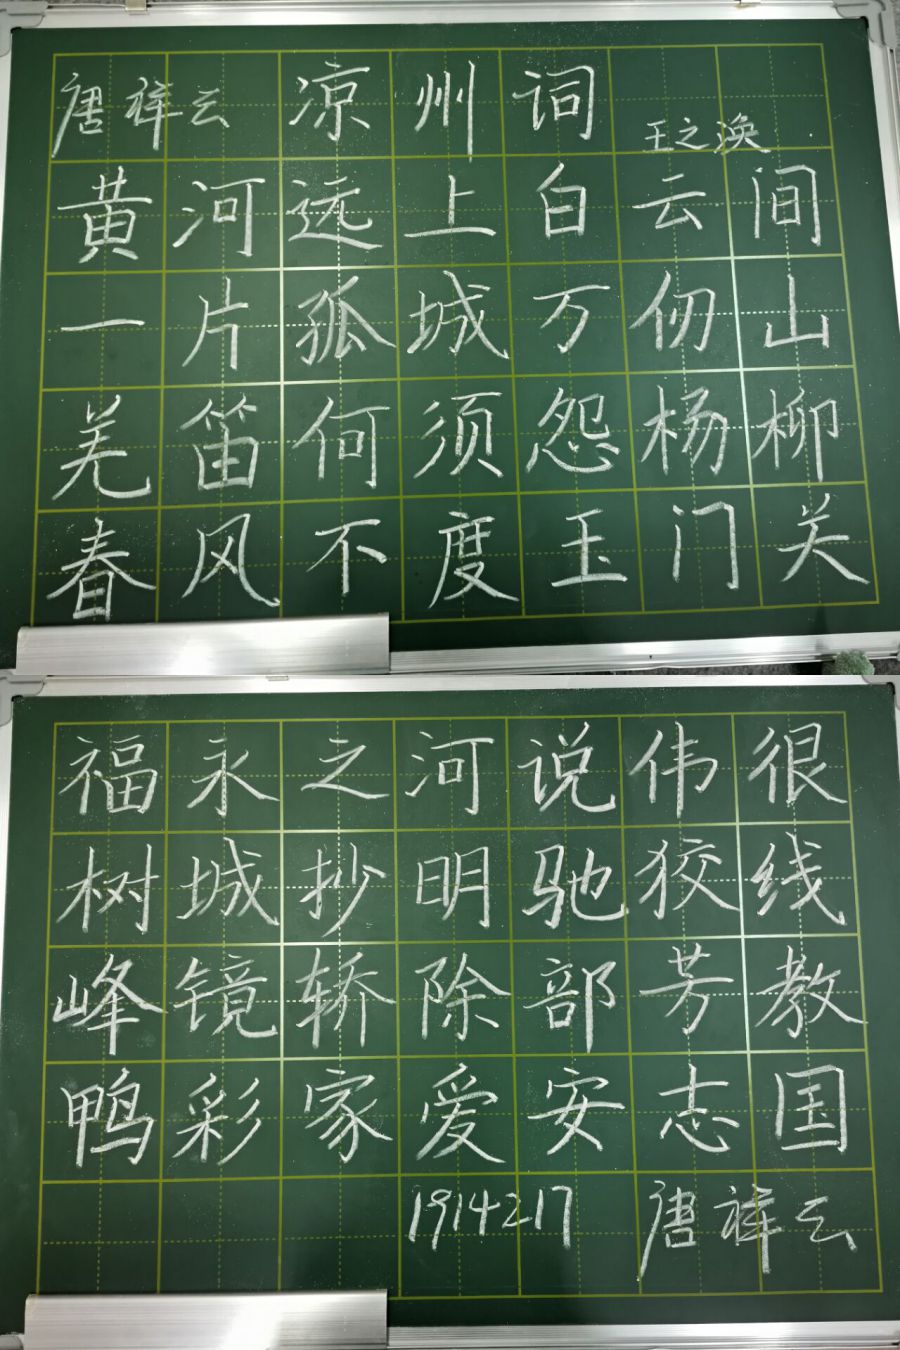 唐祥云 凉州词
王之涣
黄河远上白云间
一片孤城万仞山
羌笛何须怨杨柳
春风不度玉门关
福永之河说伟很
树城抄明驰狡线
峰镜轿除部芳教
鸭彩家爱安志国
1914217 唐祥云